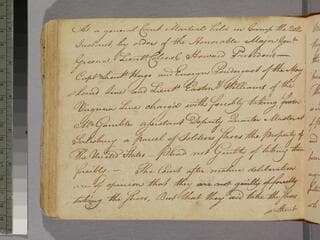 At a general Court Martial held in Camp the 20th
Instant, by order of the Honorable Major Genl
Greene, Lieut Colonel Howard President—
Capt Lieut Hugo and Ensign Prideaux of the Mary
land line and Lieut Easton Williams of the
Virginia Line charged with forcibly taking from
Mr Gamble assistant Deputy Quarter Master at
Salisbury a parcel of Soldiers shoes the property of
the United States — plead not Guilty of taking them
forcibly — The Court after mature deliberation
are of opinion that they are not guilty of forcibly
taking the shoes, But that they did take the shoes